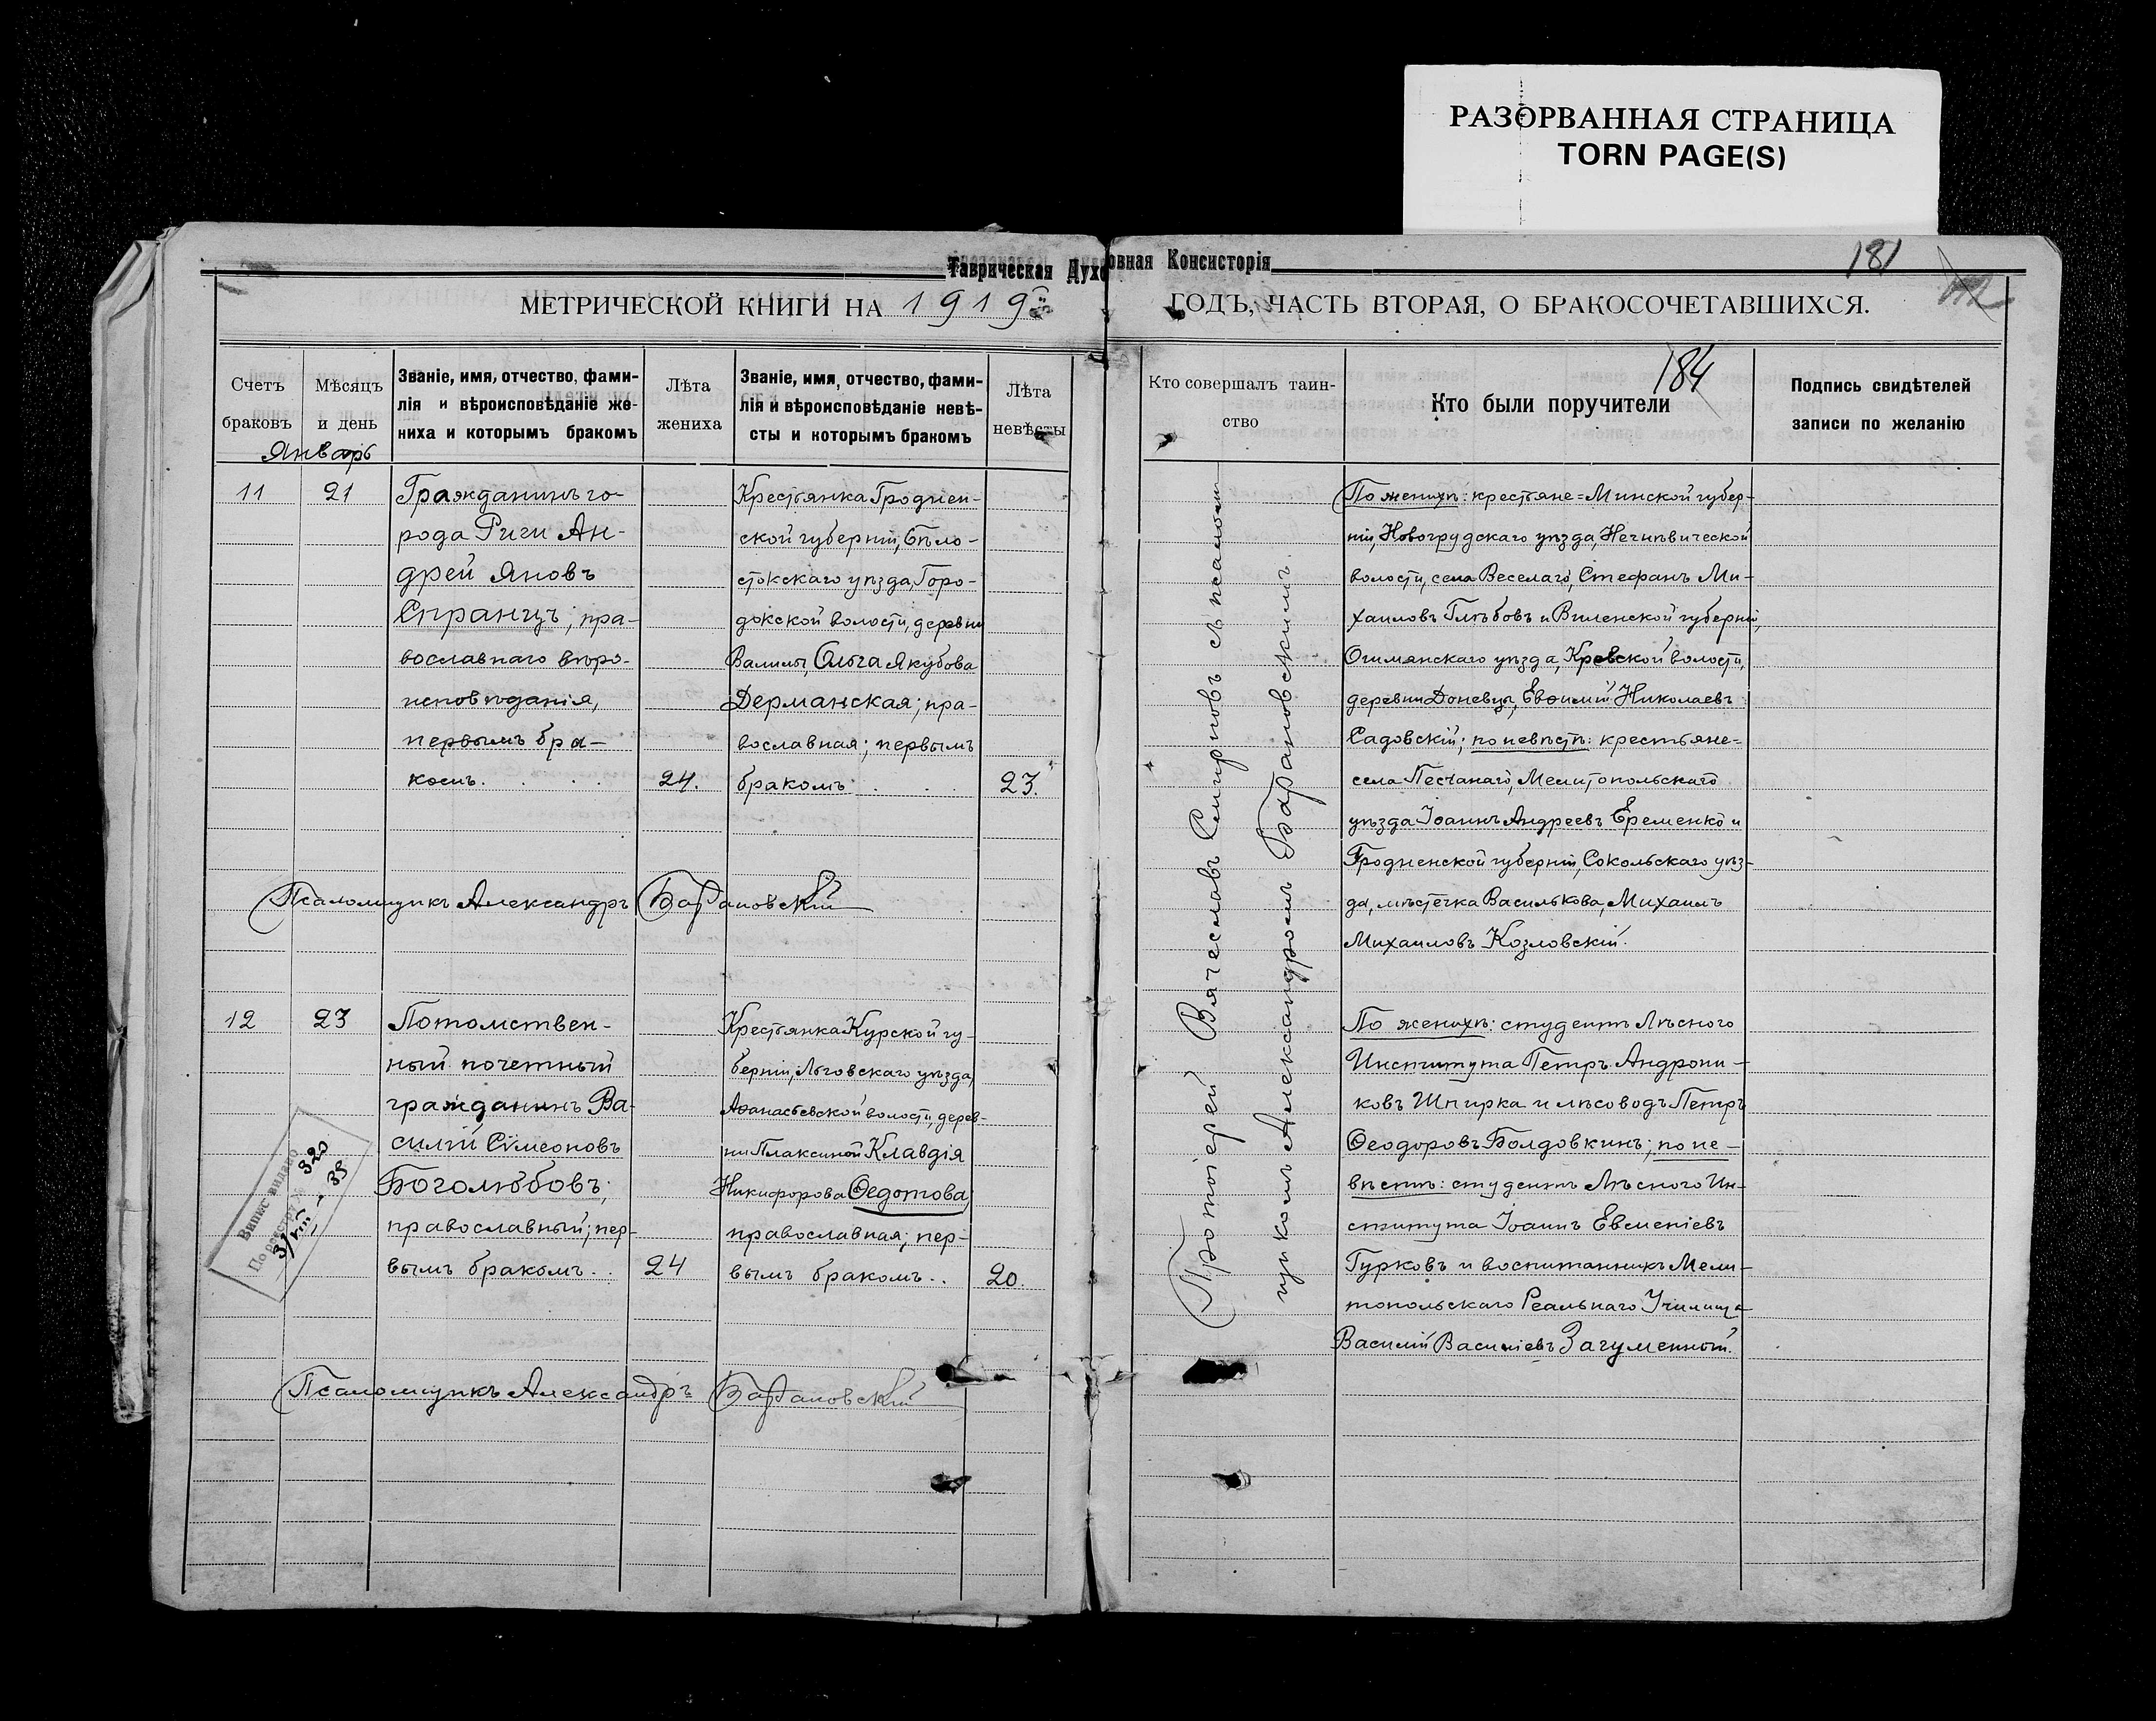 РАЗОРВАННАЯ СТРАНИЦА
TORN PAGE(S)
Таврическая Духовная Консисторія
181
МЕТРИЧЕСКОЙ КНИГИ НА 1919й ГОДЪ, ЧАСТЬ ВТОРАЯ, О БРАКОСОЧЕТАВШИХСЯ.
184
Счетъ
браковъ
Мѣсяцъ
и день
Званіе, имя, отчество, фами-
лія и вѣроисповѣданіе же-
ниха и которымъ бракомъ
Лѣта
жениха
Званіе, имя, отчество, фами-
лія и вѣроисповѣданіе невѣ-
сты и которымъ бракомъ
Лѣта
невѣсты
Кто совершалъ таин-
ство
Кто были поручители
Подпись свидѣтелей
записи по желанію
Январь
11
21
Гражданинъ го-
рода Риги Ан-
дрей Яновъ
Спранцъ; пра-
вославнаго вѣро-
исповѣданія,
первымъ бра-
комъ. . . .
24.
Крестьянка Гроднен-
ской губерніи, Бѣло-
стокскаго уѣзда, Горо-
докской волости, деревни
Валилы, Ольга Якубова
Дерманская; пра-
вославная; первымъ
бракомъ. . . .
23.
Протоіерей Вячеславъ Смирновъ съ псалом-
щикомъ Александромъ Барановскимъ.
По женихѣ: крестьяне = Минской губер-
ніи, Новогрудскаго уѣзда, Негнѣвической
волости, села Веселаго, Стефанъ Ми-
хаиловъ Глѣбовъ и Виленской губерніи,
Ошмянскаго уѣзда, Кревской волости,
деревни Доневцы, Евѳимій Николаевъ
Садовскій; по невѣстѣ: крестьяне =
села Песчанаго, Мелитопольскаго
уѣзда Іоаннъ Андреевъ Еременко и
Гродненской губерніи, Сокольскаго уѣз-
да, мѣстечка Василькова, Михаилъ
Михаиловъ Козловскій.
Псаломщикъ Александръ Барановскій
12
23
Потомствен-
ный почетный
гражданинъ Ва-
силій Сѵмеоновъ
Боголюбовъ;
православный; пер-
вымъ бракомъ. .
24
Крестьянка Курской гу-
берніи, Льговскаго уѣзда,
Аѳанасьевской волости, дерев-
ни Плаксиной Клавдія
Никифорова Ѳедотова,
православная; пер-
вымъ бракомъ. .
20.
По женихѣ: студентъ Лѣсного
Института Петръ Андрони-
ковъ Шпирка и лѣсоводъ Петръ
Ѳеодоровъ Болдовкинъ; по не-
вѣстѣ: студентъ Лѣсного Ин-
ститута Іоаннъ Евменіевъ
Гурковъ и воспитанникъ Мели-
топольскаго Реальнаго Училища
Василій Василіевъ Загуменной.
Випис видано
По реєстру № 320
31/VIII - 35
Псаломщикъ Александръ Барановскій